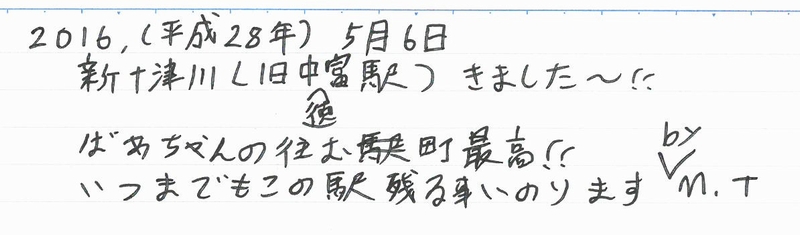 2016,(平成28年) 5月6日
新十津川(旧中富駅)きました〜!!
徳
ばあちゃんの住む町最高!!
いつまでもこの駅残る事いのります by M.T